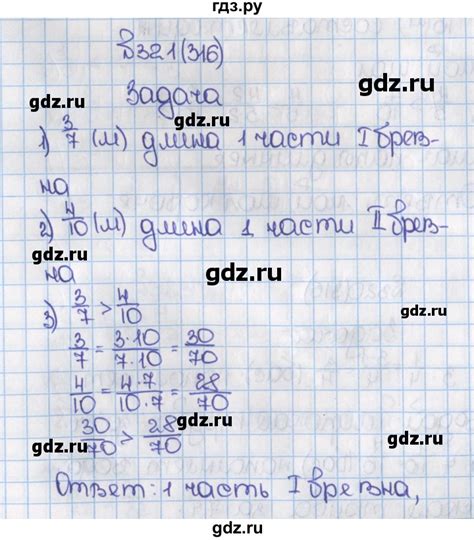 гдз.ру
В321(316)
gdz.ru
Задача
gdz.ru
1) 3/7 (м) длина 1 части I брев-
на
gdz.ru
2) 4/10 (м) длина 1 части II брев-
gdz.ru
gdz.ru
на
3) 3/7 > 4/10
gdz.ru
3/7 = 3·10/7·10 = 30/70
gdz.ru
4/10 = 4·7/10·7 = 28/70
gdz.ru
30/70 > 28/70
gdz.ru
gdz.ru
Ответ: 1 часть I бревна,
gdz.ru